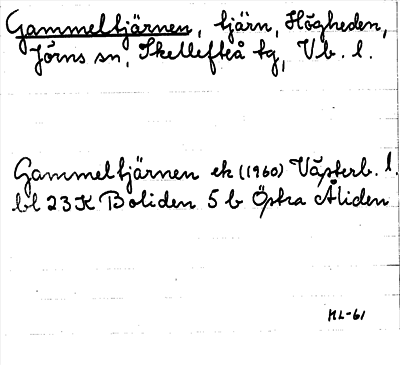 Gammeltjärnen, tjärn, Högheden,
Jörns sn, Skellefteå tg, Vb. l.
Gammeltjärnen ek (1960) Västerb. l.
bl 23 K Boliden 5 b Östra Åliden
ML-61